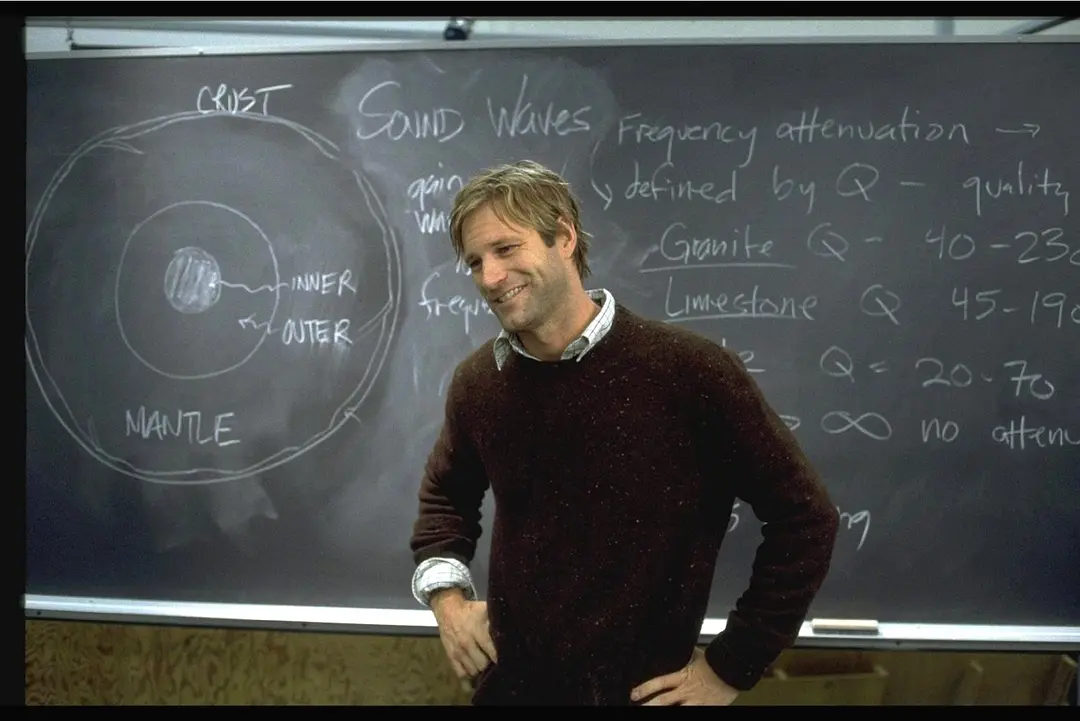 CRUST
INNER
OUTER
MANTLE
SOUND WAVES
gain
Frequency attenuation →
defined by Q – quality
Granite Q – 40-230
Limestone Q 45-190
Q = 20-70
∞ no atten